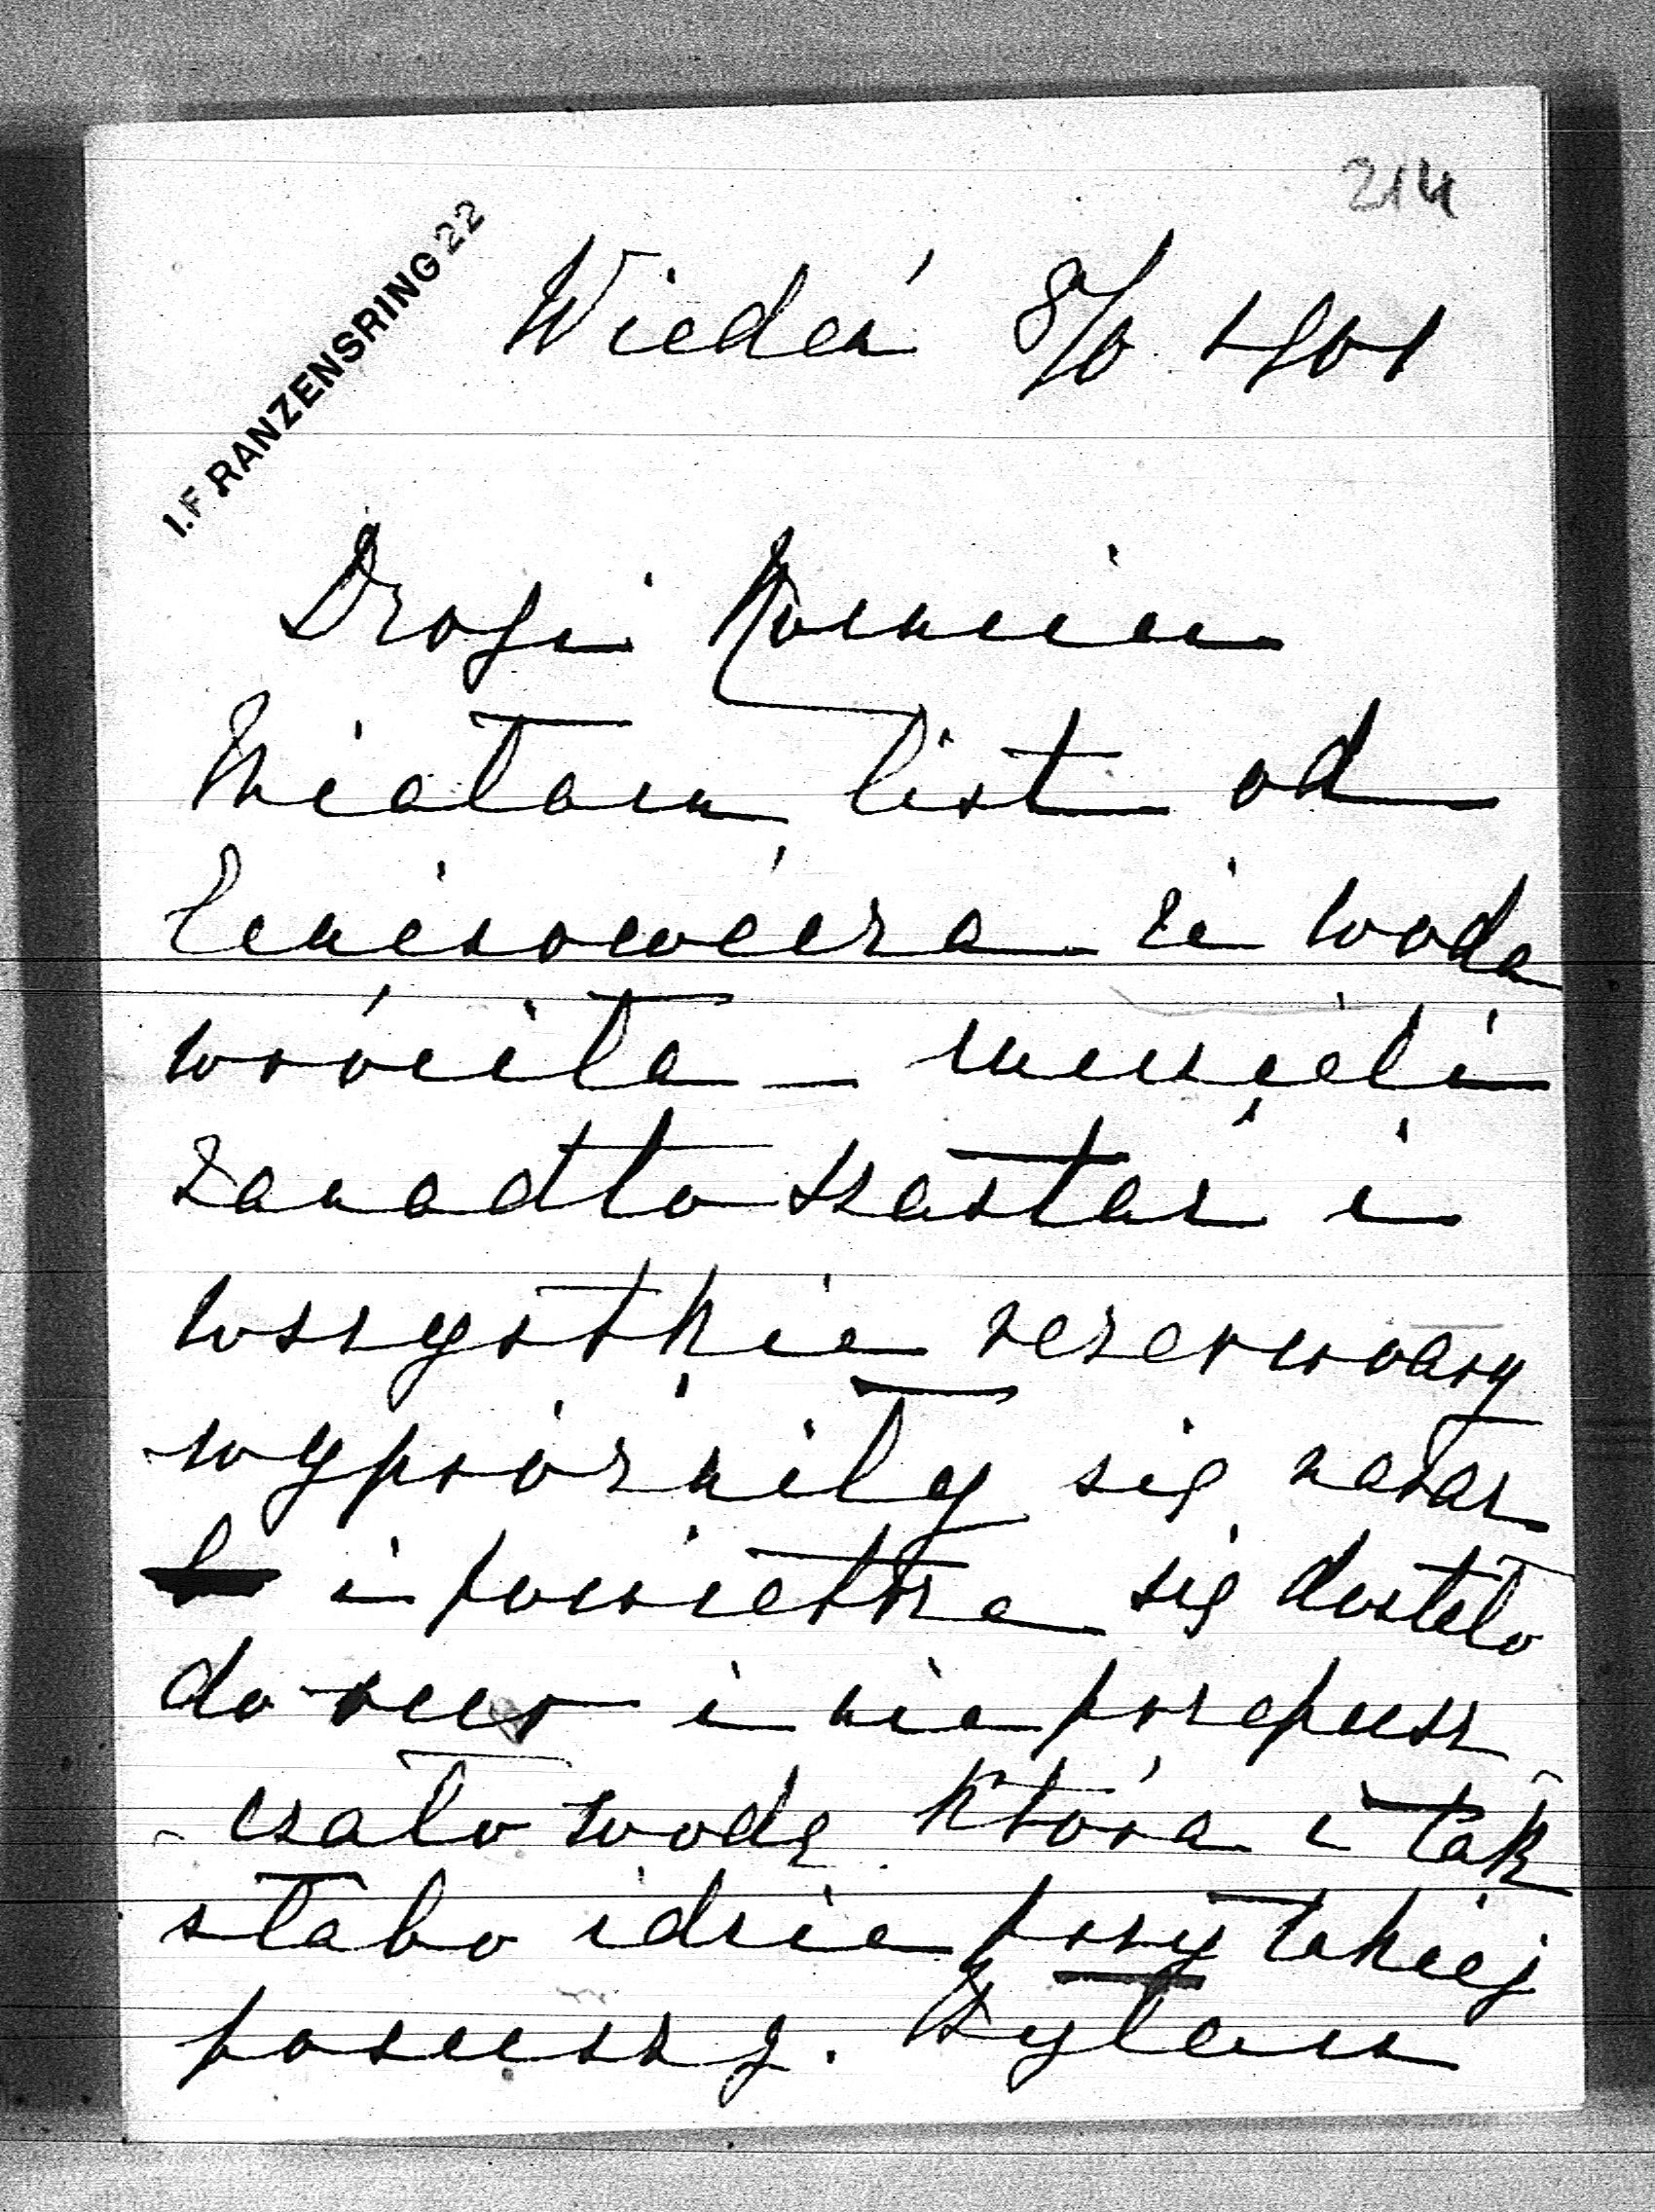 214
I. FRANZENSRING 22
Wiedeń 8/6 1901
Drogi
Miałam list od
że woda
wróciła – musieli
zanadto szastać i
wszystkie rezerwoary
wypróżniły się naraz
i powietrze się dostało
do rur i nie przepusz
czało wodę która i tak
słabo idzie przy takiej
posuszy. Byłam